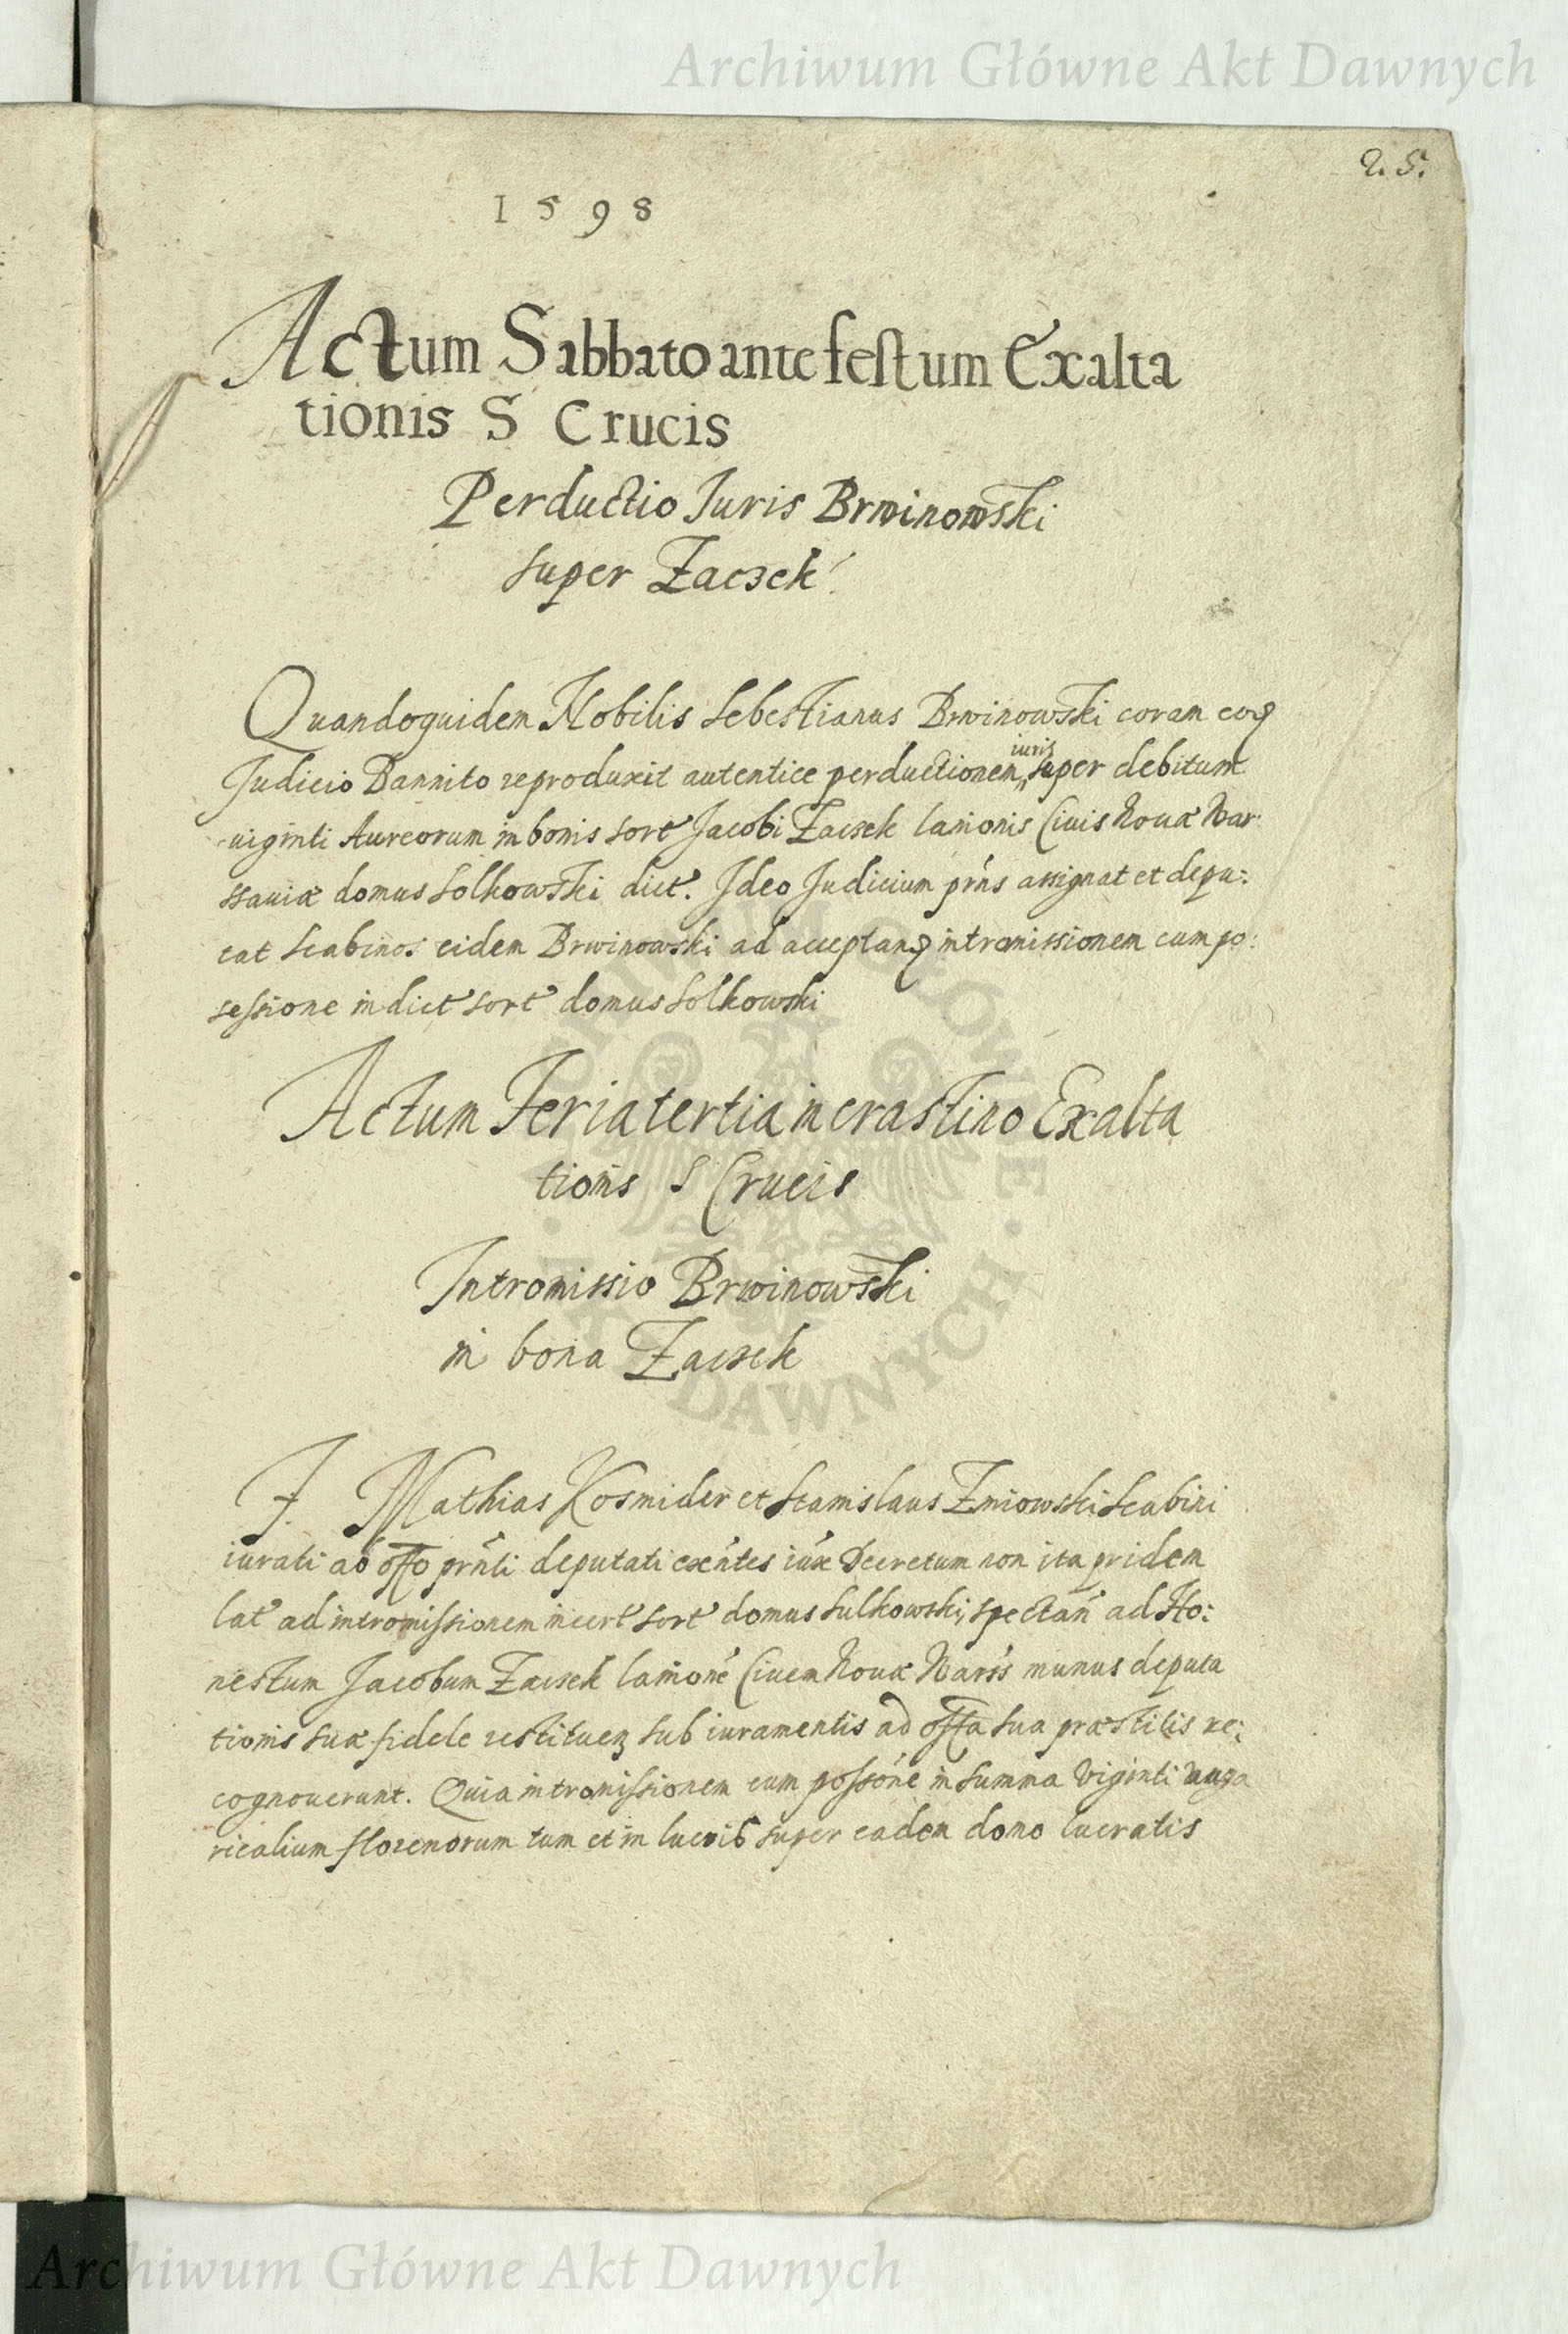 Archiwum Główne Akt Dawnych
2. 5.
1598
Actum Sabbato ante festum Exalta
tionis S Crucis
Perductio Iuris Brwinowski
super Zaczek
Quandoquidem Nobilis Sebestianus Brwinowski coram
iuris
Judicio Bannito reproduxit autentice perductionem super debitum
uiginti Aureorum in bonis sort Jacobi Zaczek lanionis Ciuis Nouæ War
ssauiæ domus Solkowski dict. Ideo Judicium prns assignat et depu:
tat Scabinos eidem Brwinowski ad acceptand intromissionem cum po:
sessione in dict sort domus Solkowski
Actum Feria tertia in crastino Exalta
tionis S Crucis
Intromissio Brwinowski
in bona Zaczek
F. Mathias Kosmider et Stanislaus Zmiowski Scabini
iurati ab offo prnti deputati exntes iux Decretum non ita pridem
lat ad intromissionem in cert sort domus Sulkowski, spectan ad Ho:
nestum Jacobum Zaczek lanione Ciuem Nouæ Wars munus deputa
tionis suæ fidele sub iuramentis ad offa sua præstitis re:
cognouerunt. Quia intromissionem cum possone in summa Viginti unga
ricalium florenorum tum et in lucris super eadem domo lucratis
ARCHIWUM GŁÓWNE AKT DAWNYCH
Archiwum Główne Akt Dawnych